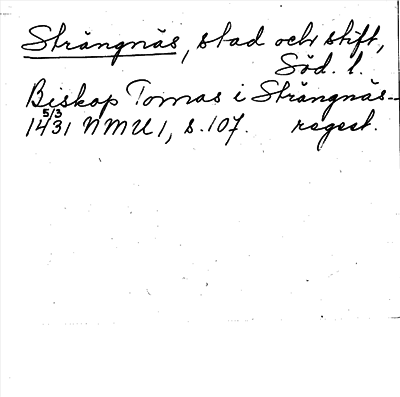 Strängnäs, stad och stift,
Söd. l.
Biskop Tomas i Strängnäs--
5/3
1431 NMU 1, s. 107. regest.